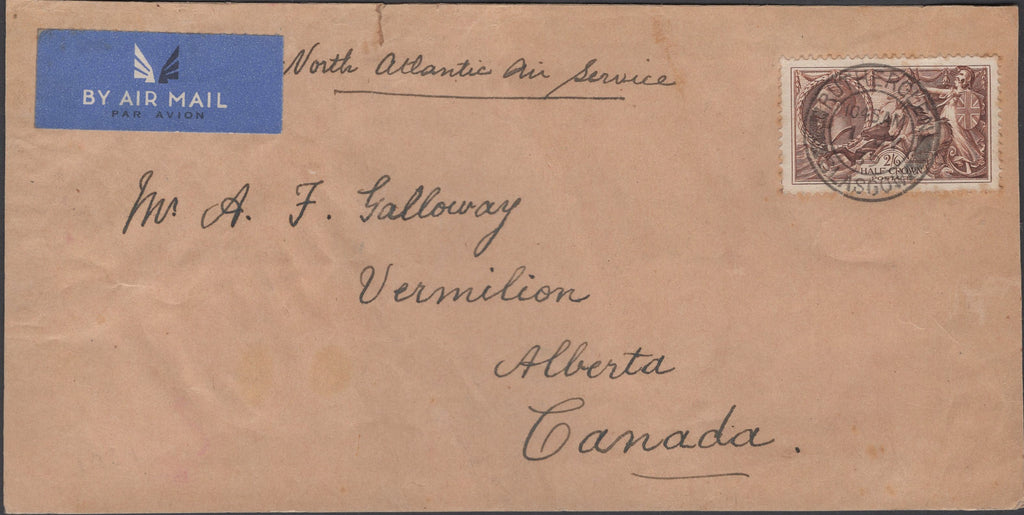 BY AIR MAIL
PAR AVION
North Atlantic Air Service
Mr. A. F. Galloway
Vermilion
Alberta
Canada.
10 45 AM
2/6
HALF CROWN
GLASGOW